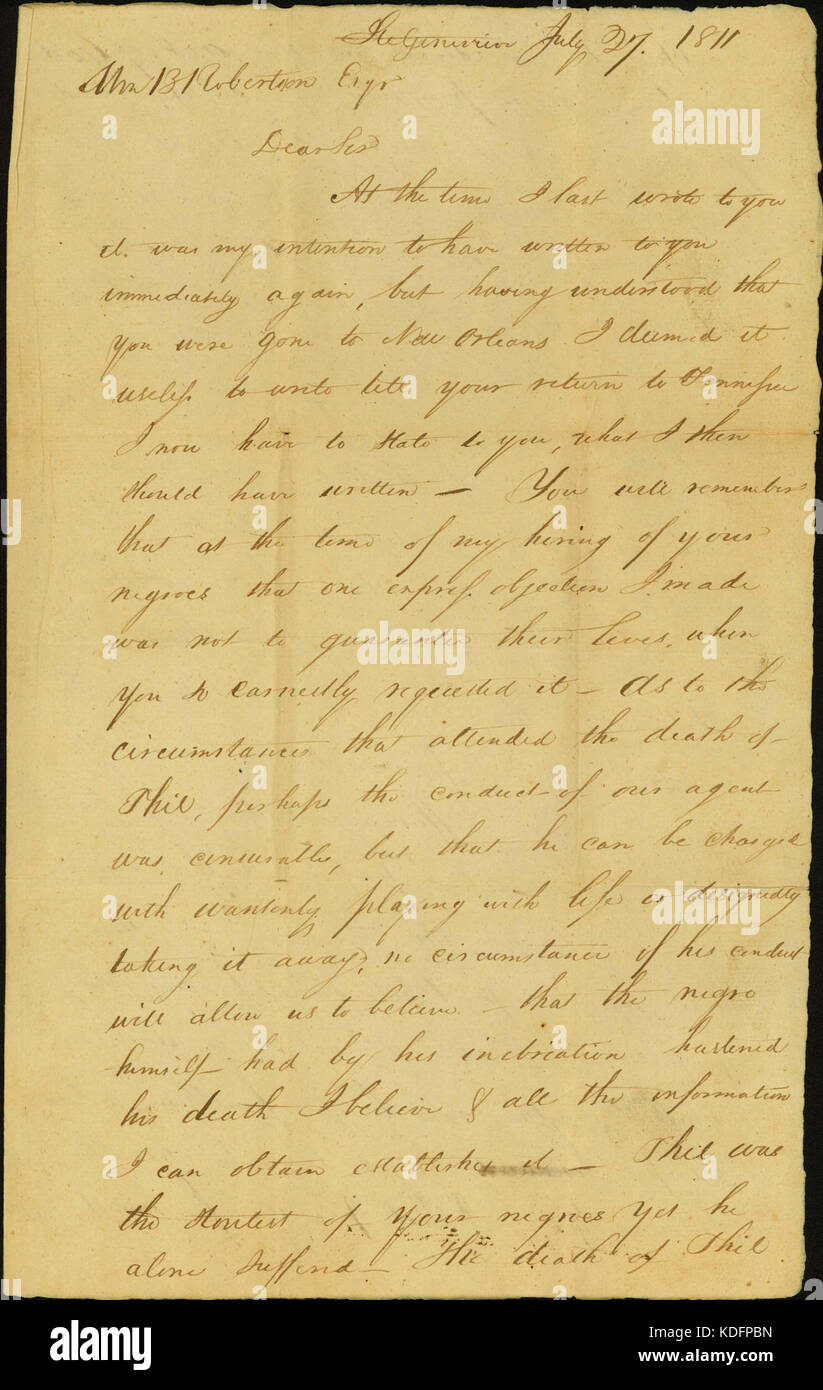 Ste Genevieve July 27. 1811
Wm B Robertson Esqr
Dear Sir
At the time I last wrote to you
it was my intention to have written to you
immediately again, but having understood that
you were gone to New Orleans I deemed it
useless to write till your return to Tennessee
I now have to state to you, what I then
should have written — You will remember
that at the time of my hiring of your
negroes that one express objection I made
was not to guarantee their lives, when
you so earnestly requested it — As to the
circumstances that attended the death of
Phil, perhaps the conduct of our agent
was censurable, but that he can be charged
with wantonly playing with life or designedly
taking it away, no circumstance of his conduct
will allow us to believe — that the negro
himself had by his inebriation hastened
his death I believe & all the information
I can obtain establishes it — Phil was
the stoutest of your negroes yet he
alone suffered — The death of Phil
alamy stock photo
KDFPBN
www.alamy.com